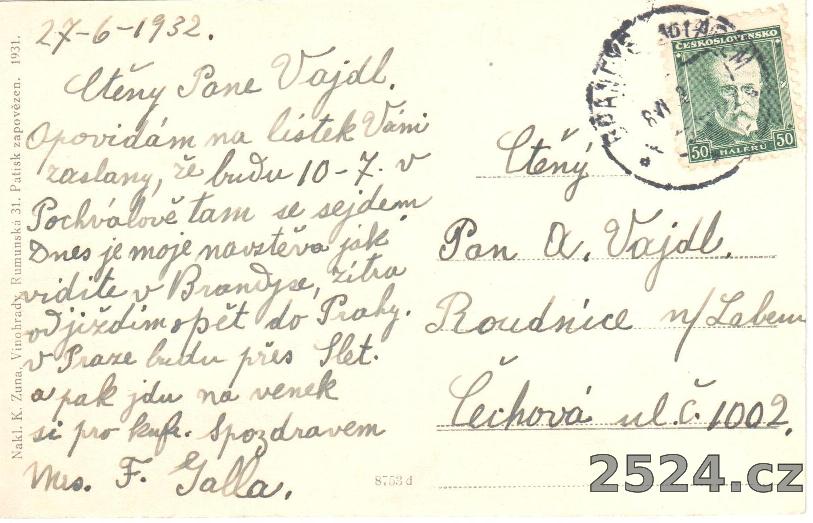 27-6-1932.
Ctěný Pane Vajdl.
Opovidám na listek Vámi
zaslany, že budu 10-7. v
Pochválově tam se sejdem.
Dnes je moje navztěva jak
vidite v Brandyse, zitra
odjiždim opět do Prahy.
v Praze budu přes Slet.
a pak jdu na venek
si pro kufr. Spozdravem
Mrs. F. Galla.
Nakl. K. Zuna, Vinohrady, Rumunská 31. Patisk zapovězen. 1931.
8753 d
ČESKOSLOVENSKO
50 HALÉŘŮ 50
Ctěný
Pan A. Vajdl.
Roudnice n/Labem
Čechová ul. č. 1002.
2524.cz